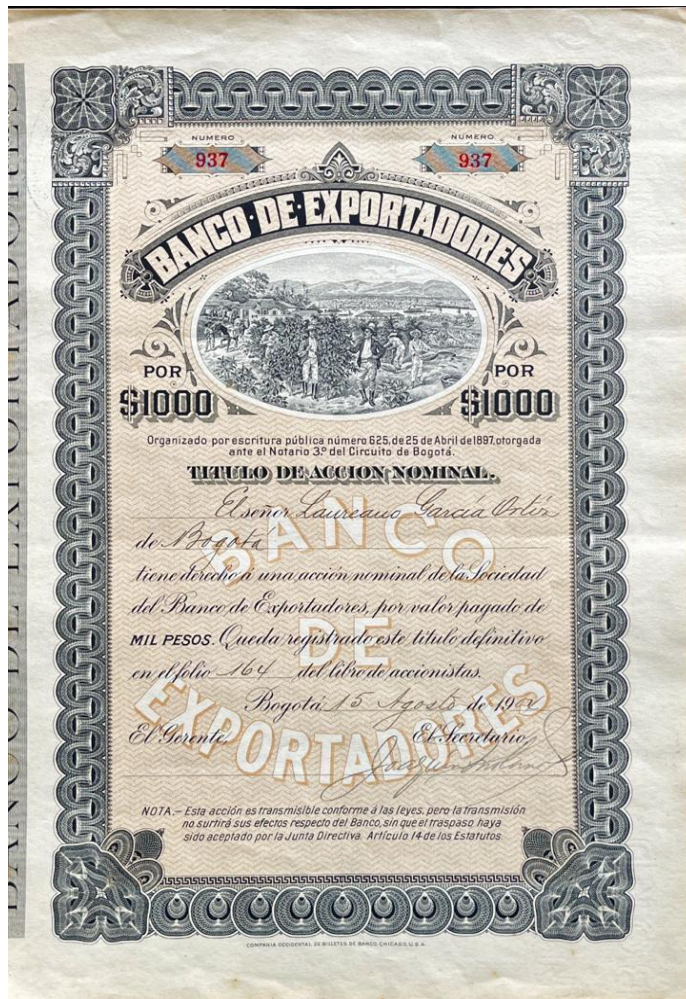 NUMERO NUMERO
937 937
BANCO·DE·EXPORTADORES
POR POR
$1000 $1000
Organizado por escritura pública número 625, de 25 de Abril de 1897, otorgada
ante el Notario 3º del Circuito de Bogotá.
TITULO DE ACCION NOMINAL.
El señor Laureano García Ortiz
de Bogotá
tiene derecho á una acción nominal de la Sociedad
del Banco de Exportadores, por valor pagado de
MIL PESOS. Queda registrado este título definitivo
en el folio 164 del libro de accionistas.
Bogotá 15 Agosto de 1902
El Gerente, El Secretario,
Joaquín
BANCO
DE
EXPORTADORES
NOTA.– Esta acción es transmisible conforme á las leyes, pero la transmisión
no surtirá sus efectos respecto del Banco, sin que el traspaso haya
sido aceptado por la Junta Directiva. Artículo 14 de los Estatutos.
COMPAÑIA OCCIDENTAL DE BILLETES DE BANCO, CHICAGO, U.S.A.
BANCO DE EXPORTADORES